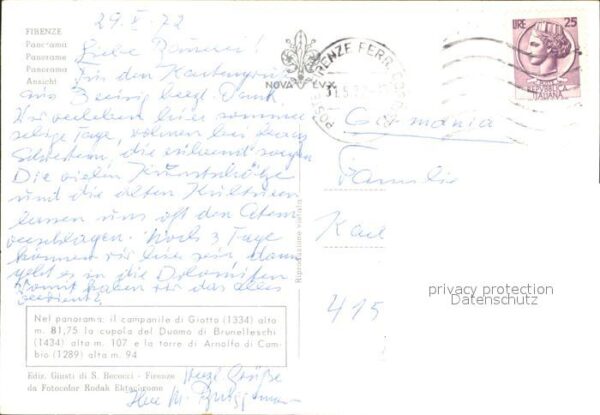 29. V. 72
FIRENZE
Panorama
Panorame
Panorama
Ansicht
Liebe
Für den Kartengruß
aus Dank
Wir verleben hier
selige Tage, wohnen bei
Schwestern, die rührend sorgen
Die vielen Kunstschätze
und die alten Kulturen
lassen uns oft den Atem
verschlagen. Noch 3 Tage
können wir hier sein, dann
geht es in die Dolomiten
Womit haben wir das alles
verdient?
Nel panorama: il campanile di Giotto (1334) alto
m. 81,75 la cupola del Duomo di Brunelleschi
(1434) alto m. 107 e la torre di Arnolfo di Cam-
bio (1289) alto m. 94
Ediz. Giusti di S. Becocci - Firenze
da Fotocolor Kodak Ektachrome
Herzl. Grüße
Ihre M.
Riproduzione vietata
NOVA LVX
FIRENZE FERR.
31.5.72
LIRE 25
REPUBBLICA
ITALIANA
Germania
Familie
Karl
415
privacy protection
Datenschutz